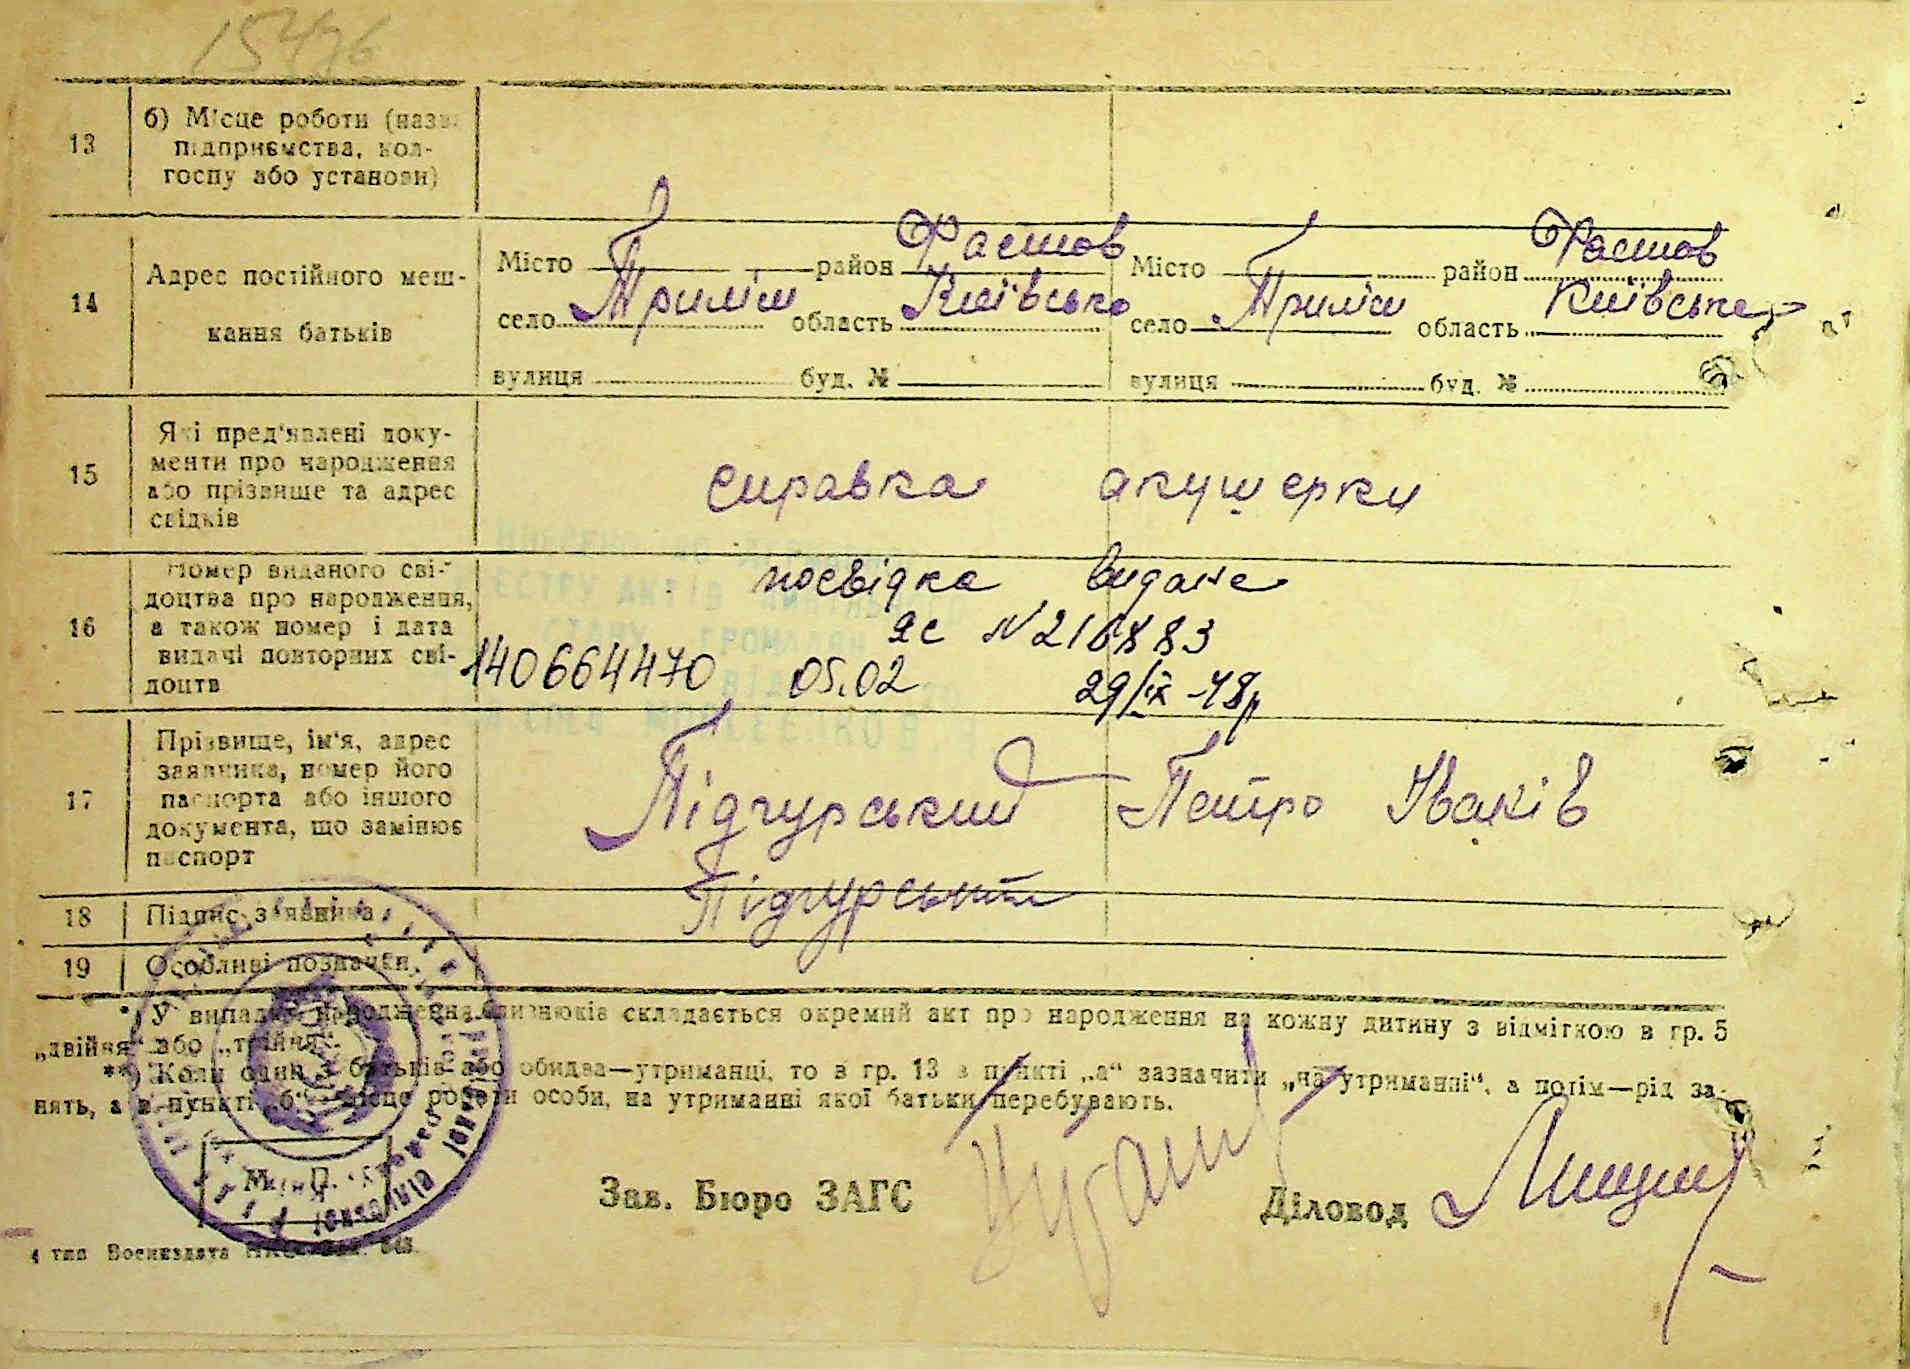 13
б) Місце роботи (назва
підприємства, кол-
госпу або установи)
14
Адрес постійного меш-
кання батьків
Місто район Фастов Місто район Фастов
село Триліси область Київсько село Триліси область Київська
вулиця буд. № вулиця буд. №
15
Які пред'явлені доку-
менти про народження
або прізвище та адрес
свідків
справка акушерки
16
Номер виданого сві-
доцтва про народження,
а також номер і дата
видачі повторних сві-
доцтв
посвідка видане
ЯС N 216883
140664470 05.02 29/ІХ-48р
17
Прізвище, ім'я, адрес
заявника, номер його
паспорта або іншого
документа, що замінює
паспорт
Підгурський Петро Іванів
18 Підпис заявника
Підгурський
19 Особливі позначки
* У випадку народження близнюків складається окремий акт про народження на кожну дитину з відміткою в гр. 5
„двійня" або „трійня".
**) Коли один з батьків або обидва—утриманці, то в гр. 13 в пункті „а" зазначити „на утриманні", а потім—рід за-
нять, а в пункті „б" місце роботи особи, на утриманні якої батьки перебувають.
М. П.
Зав. Бюро ЗАГС Діловод